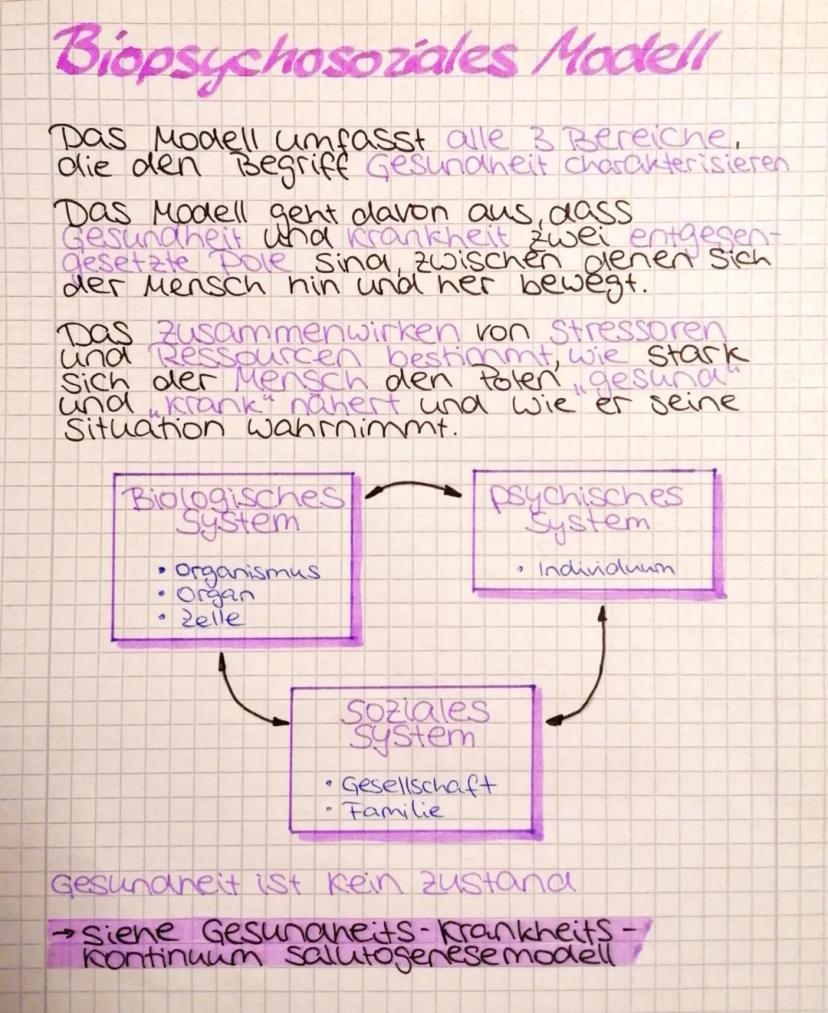 Biopsychosoziales Modell
Das Modell umfasst alle 3 Bereiche,
die den Begriff Gesundheit charakterisieren
Das Modell geht davon aus, dass
Gesundheit und Krankheit zwei entgegen-
gesetzte Pole sind, zwischen denen sich
der Mensch hin und her bewegt.
Das Zusammenwirken von Stressoren
und Ressourcen bestimmt, wie stark
sich der Mensch den Polen „gesund"
und „krank" nähert und wie er seine
Situation wahrnimmt.
Biologisches
System
• Organismus
• Organ
• Zelle
Psychisches
System
• Individuum
Soziales
System
• Gesellschaft
• Familie
Gesundheit ist kein Zustand
→ siehe Gesundheits-Krankheits-
Kontinuum Salutogenesemodell